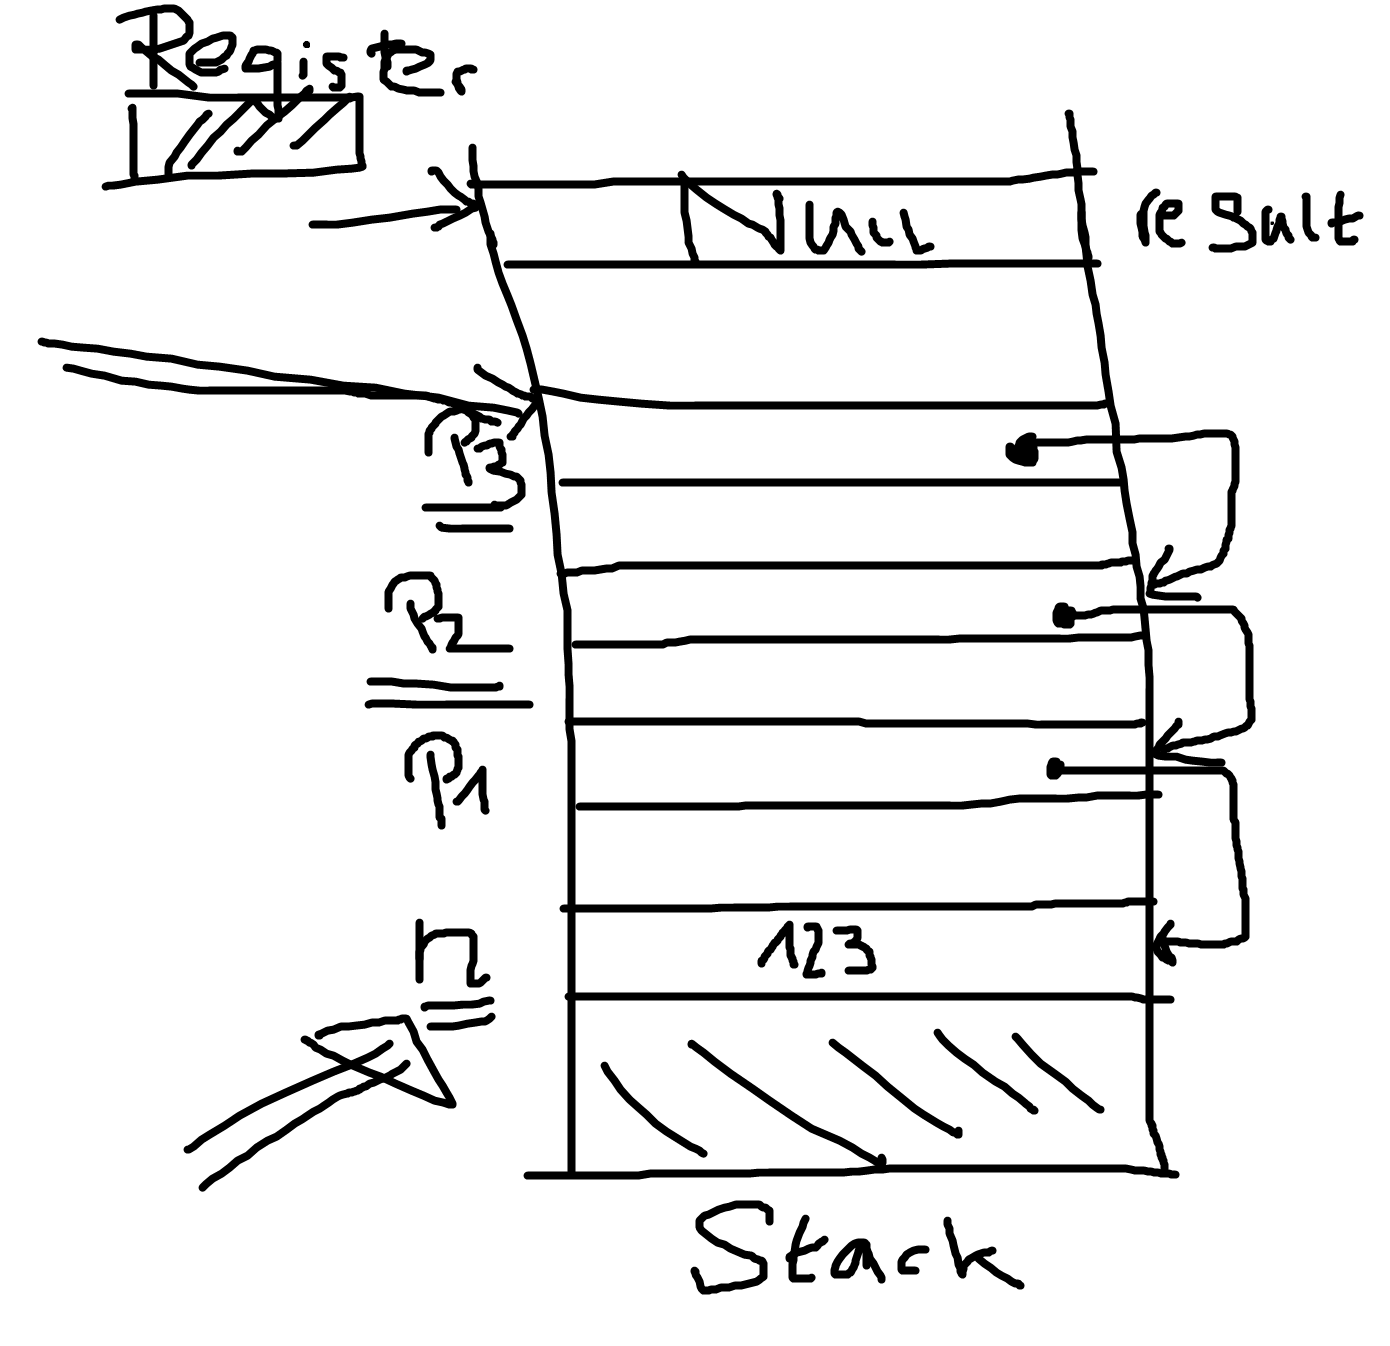 Register
Null
result
P3
P2
P1
n
123
Stack